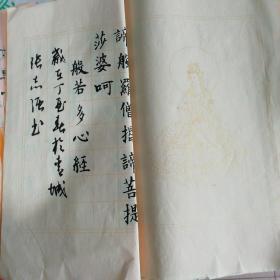 諦般羅僧揭諦菩提
莎婆呵
般若多心經
歲在丁酉春於青城
張志强书